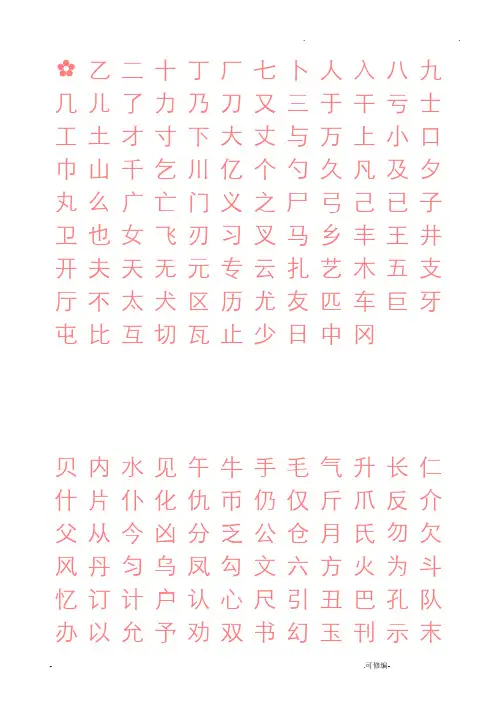 ✿ 乙 二 十 丁 厂 七 卜 人 入 八 九
几 儿 了 力 乃 刀 又 三 于 干 亏 士
工 土 才 寸 下 大 丈 与 万 上 小 口
巾 山 千 乞 川 亿 个 勺 久 凡 及 夕
丸 么 广 亡 门 义 之 尸 弓 己 已 子
卫 也 女 飞 刃 习 叉 马 乡 丰 王 井
开 夫 天 无 元 专 云 扎 艺 木 五 支
厅 不 太 犬 区 历 尤 友 匹 车 巨 牙
屯 比 互 切 瓦 止 少 日 中 冈
贝 内 水 见 午 牛 手 毛 气 升 长 仁
什 片 仆 化 仇 币 仍 仅 斤 爪 反 介
父 从 今 凶 分 乏 公 仓 月 氏 勿 欠
风 丹 匀 乌 凤 勾 文 六 方 火 为 斗
忆 订 计 户 认 心 尺 引 丑 巴 孔 队
办 以 允 予 劝 双 书 幻 玉 刊 示 末
- .可修编-